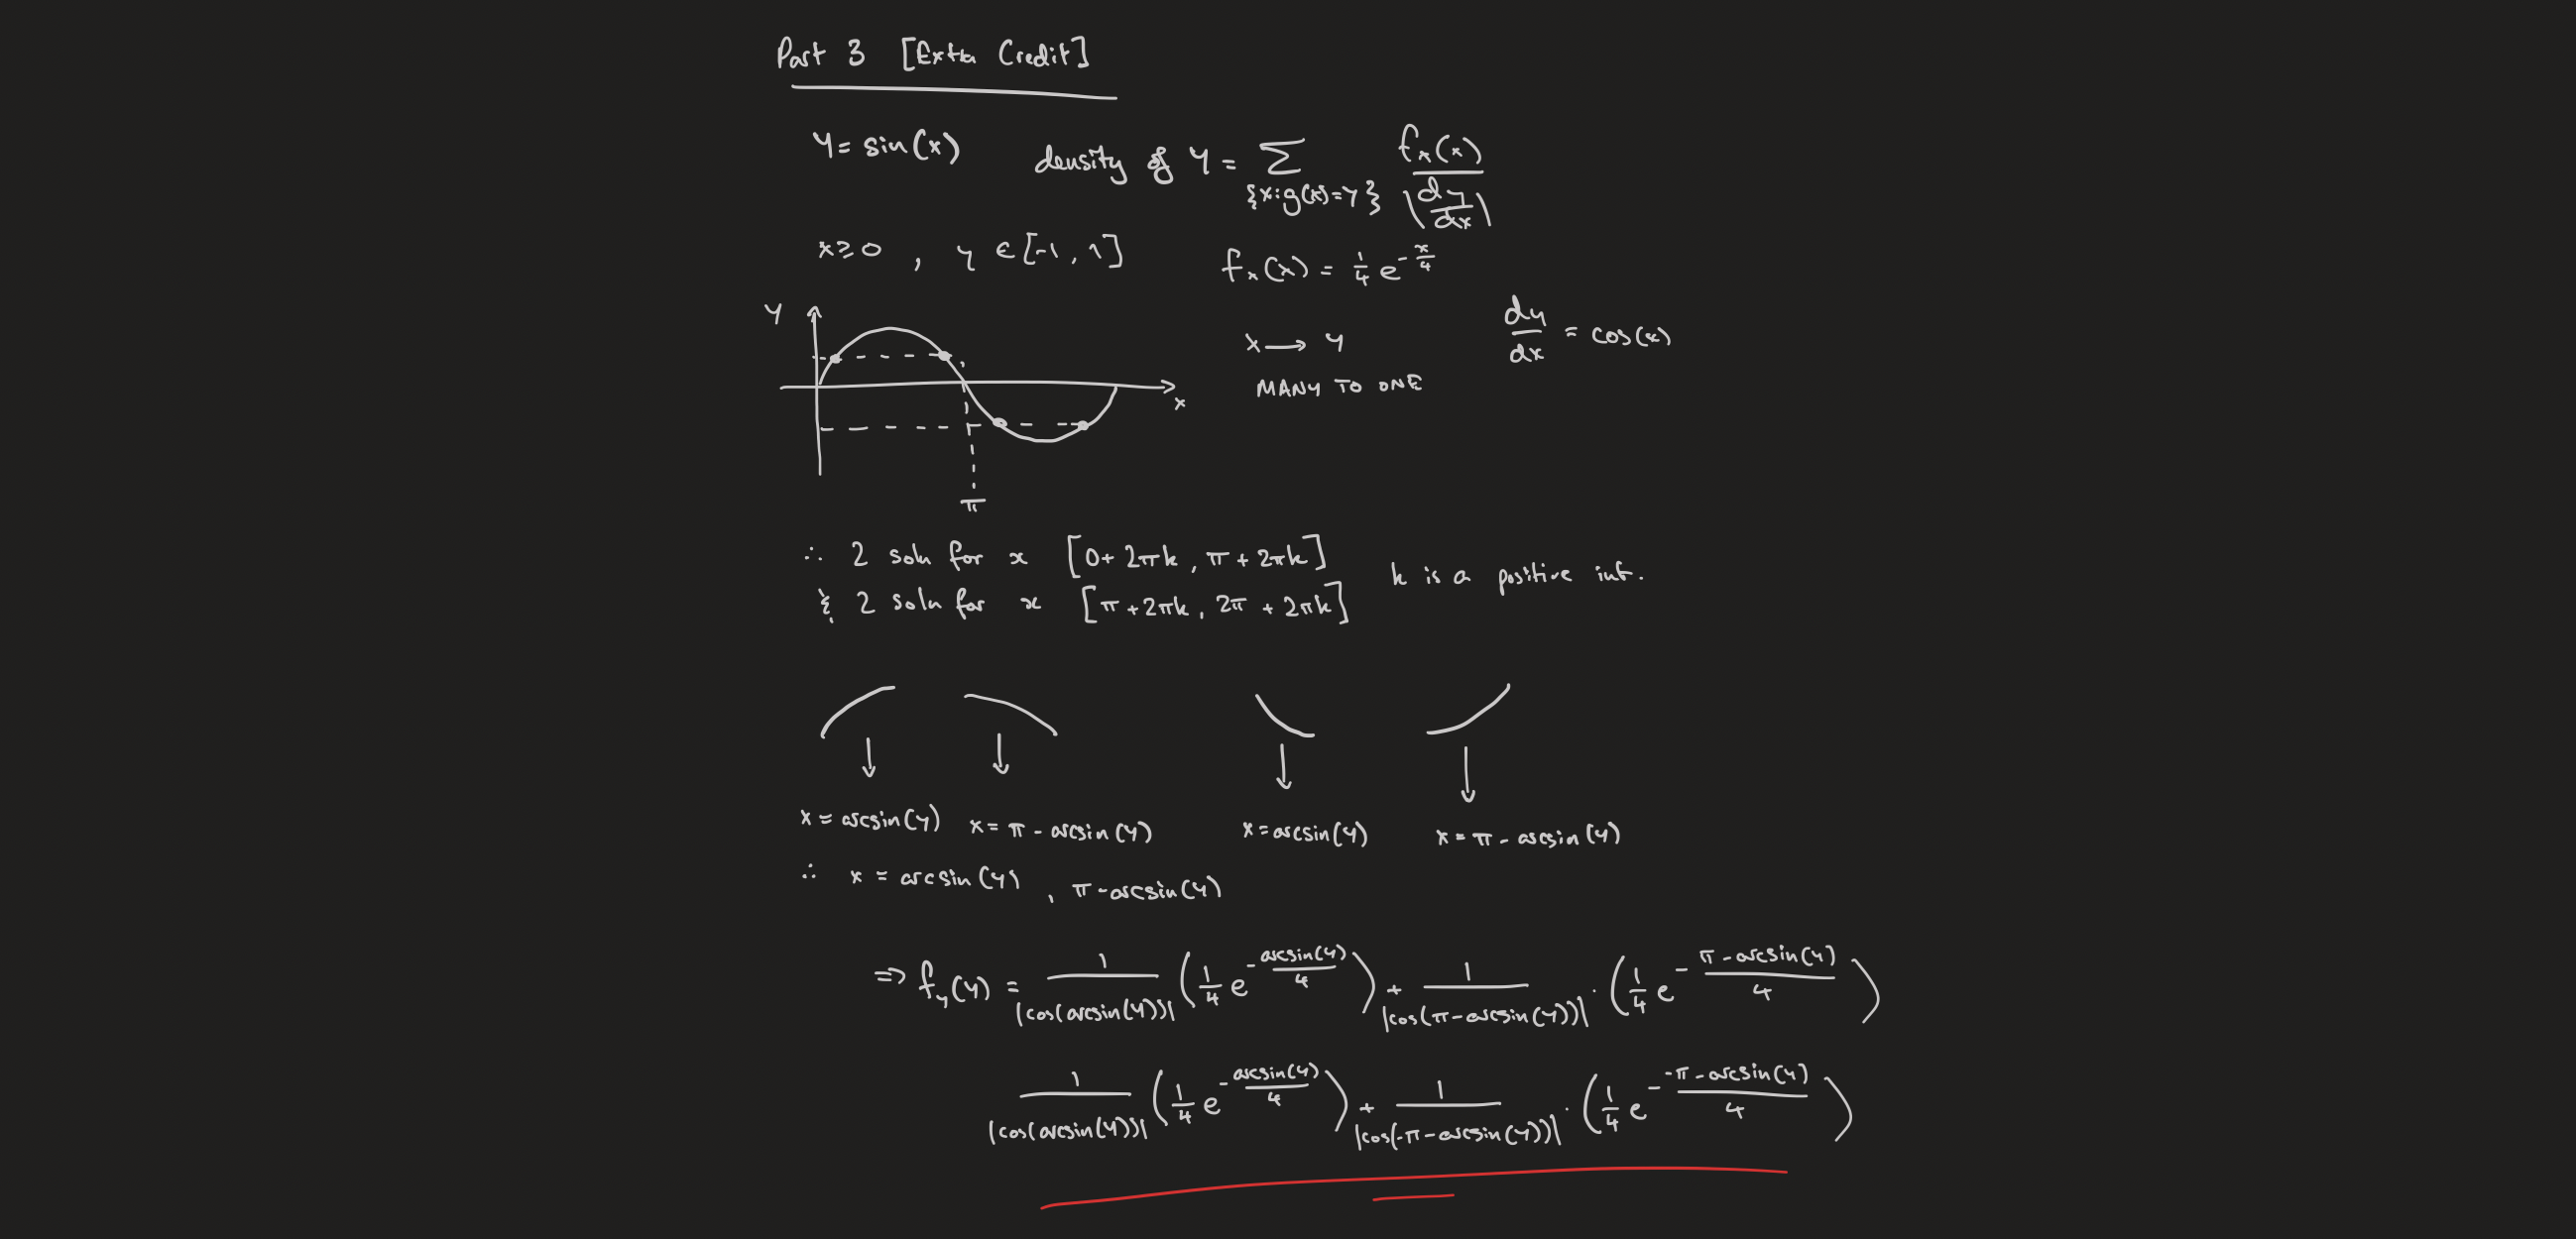 Part 3 [Extra Credit]
Y = sin(x) density of Y = ∑_{x:g(x)=Y} f_x(x) / |dy/dx|
x ≥ 0 , y ∈ [-1, 1] f_x(x) = 1/4 e^{-x/4}
Y
x → Y dy/dx = cos(x)
MANY TO ONE
x
π
∴ 2 soln for x [0 + 2πk, π + 2πk] k is a positive int.
& 2 soln for x [π + 2πk, 2π + 2πk]
x = arcsin(y) x = π - arcsin(y) x = arcsin(y) x = π - arcsin(y)
∴ x = arcsin(y) , π - arcsin(y)
⇒ f_y(y) = 1/|cos(arcsin(y))| (1/4 e^{-arcsin(y)/4}) + 1/|cos(π - arcsin(y))| · (1/4 e^{-(π - arcsin(y))/4})
1/|cos(arcsin(y))| (1/4 e^{-arcsin(y)/4}) + 1/|cos(-π - arcsin(y))| · (1/4 e^{-(-π - arcsin(y))/4})